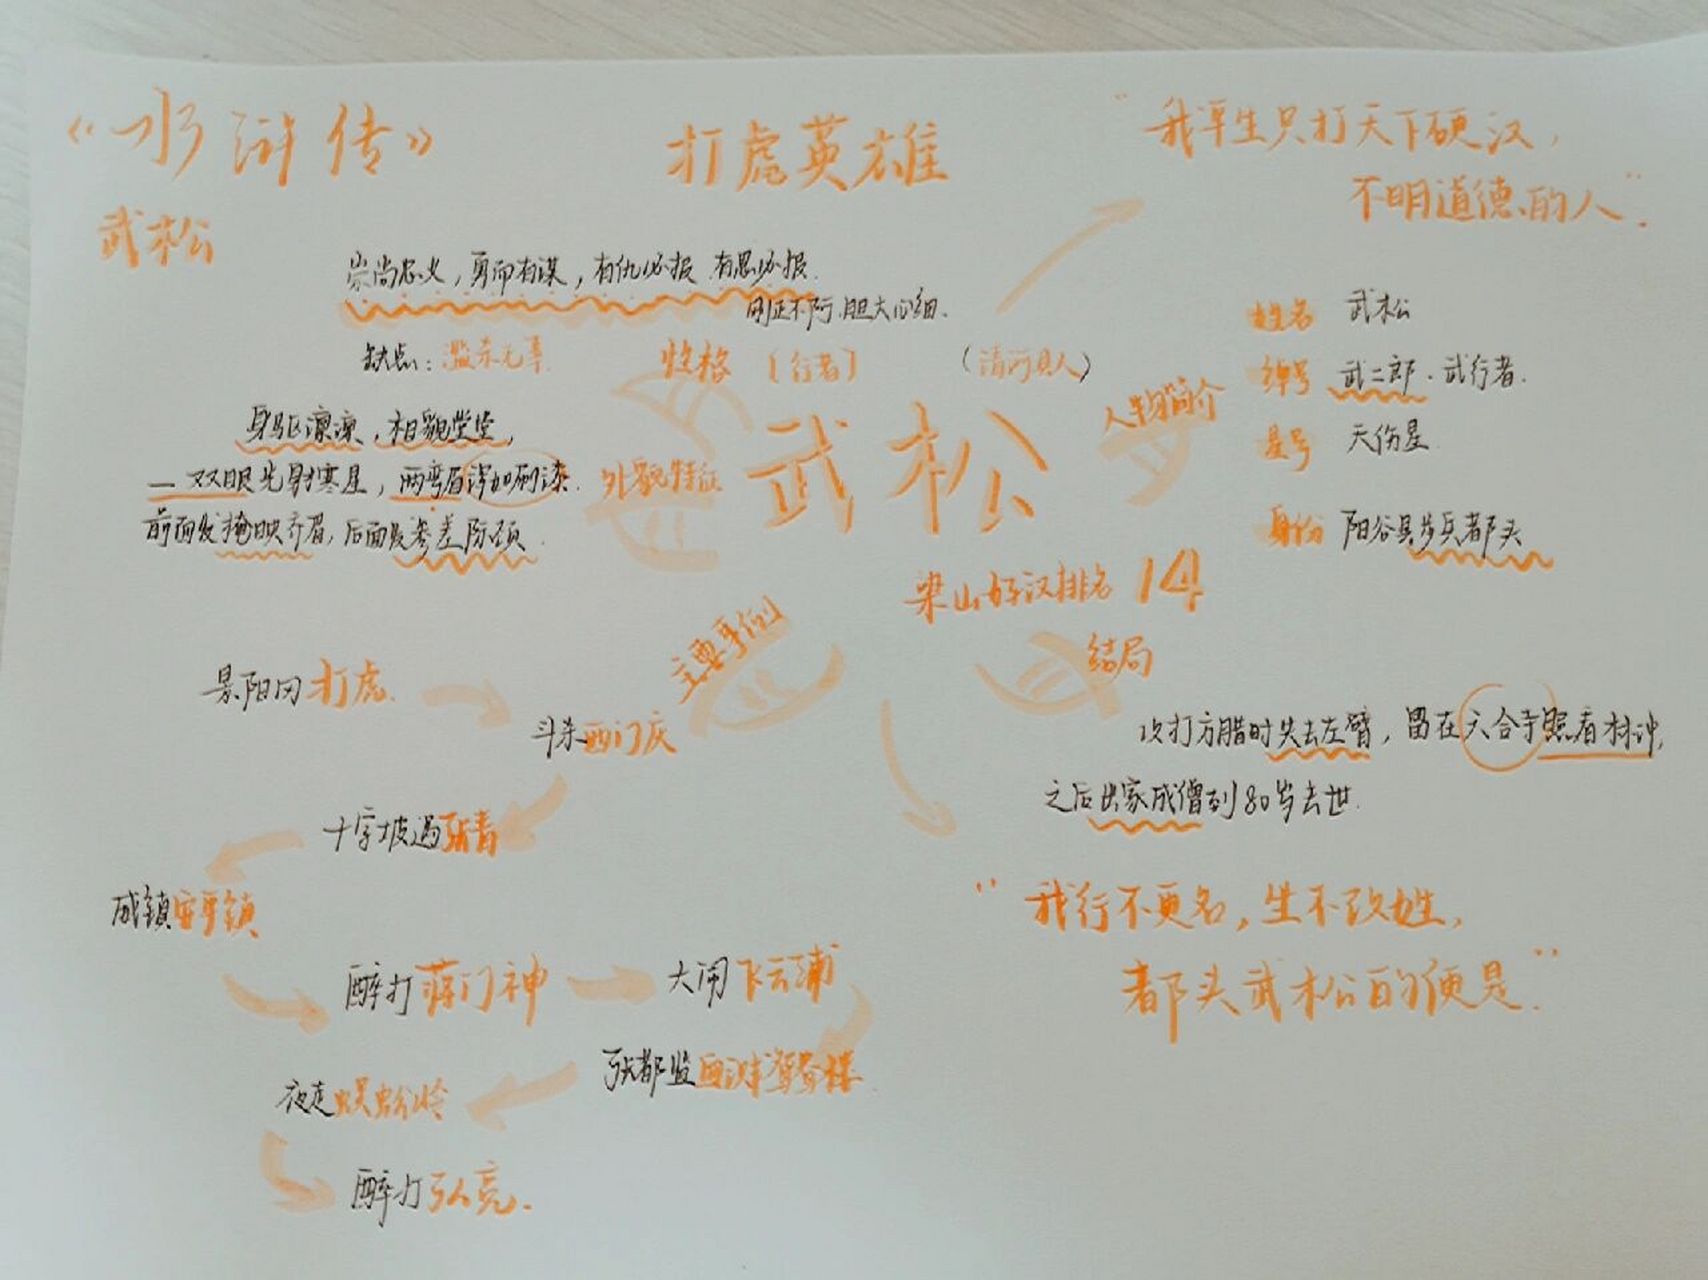 《水浒传》
打虎英雄
"我平生只打天下硬汉，
不明道德的人"
武松
崇尚忠义，勇而有谋，有仇必报 有恩必报.
刚正不阿.胆大心细.
缺点：滥杀无辜
性格
（行者）
（清河县人）
武松
外貌特征
身躯凛凛，相貌堂堂，
一双眼光射寒星，两弯眉浑如刷漆.
前面发掩映齐眉，后面发参差际颈.
人物简介
姓名 武松
绰号 武二郎.武行者.
星号 天伤星
身份 阳谷县步兵都头
梁山好汉排名14
主要事例
景阳冈打虎.
斗杀西门庆
十字坡遇张青
成镇安平镇
醉打蒋门神
大闹飞云浦
张都监血溅鸳鸯楼
夜走蜈蚣岭
醉打孔亮.
结局
攻打方腊时失去左臂，留在六合寺照看林冲，
之后出家成僧到80岁去世.
"我行不更名，生不改姓，
都头武松的便是"